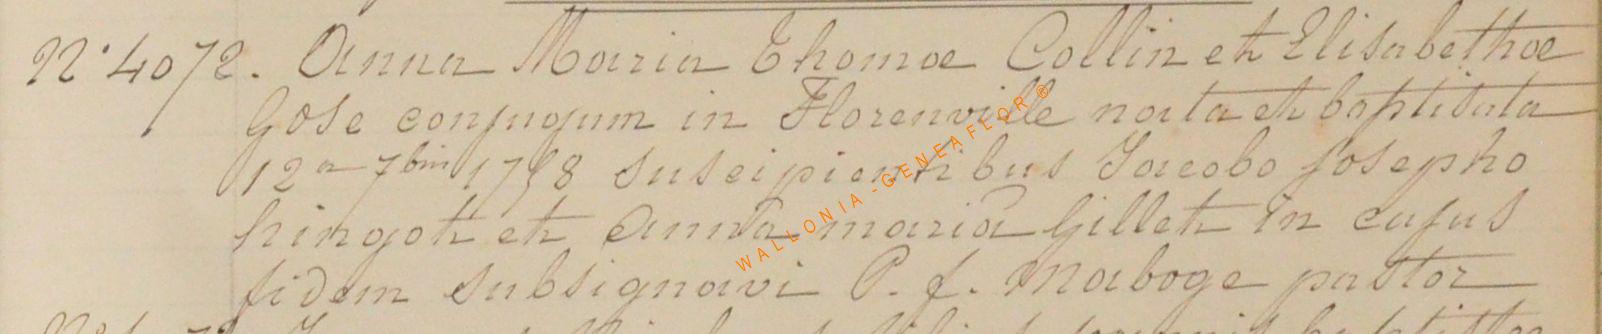 N° 4072. Anna Maria Thomæ Collin et Elisabethæ
Gose conjugum in Florenville nata et baptisata
12a 7bris 1758 suscipientibus Jacobo Josepho
hingot et Anna maria Gillet in cujus
fidem subsignavi P. f. Maboge pastor
WALLONIA - GENEAFLOR ®